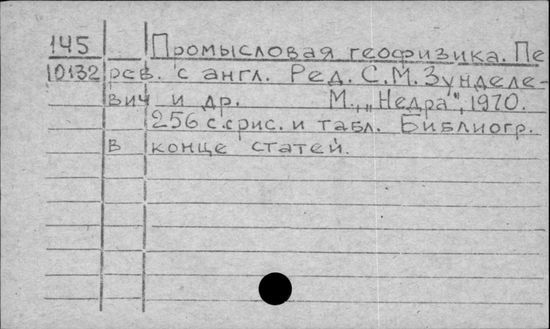 145 Промысловая геофизика. Пе
10132 рев. с англ. Ред. С.М. Зунделе-
вич и др. М., „Недра", 1970.
256 с. с рис. и табл. Библиогр.
в конце статей.